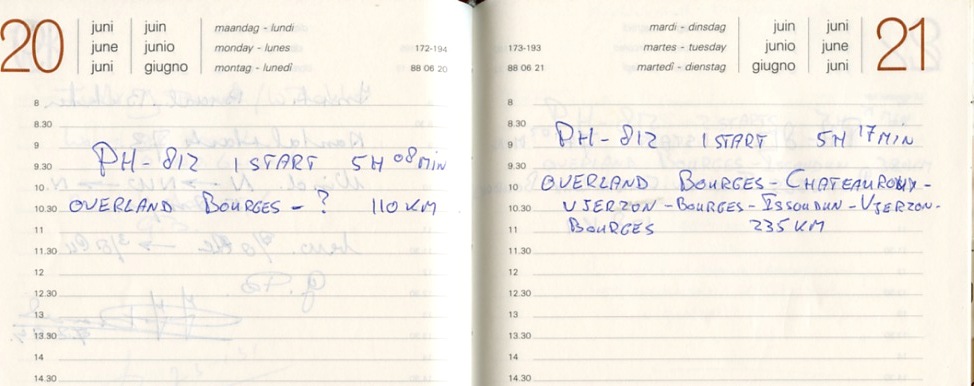 20
juni juin maandag - lundi
june junio monday - lunes 172-194
juni giugno montag - lunedî 88 06 20
8
8.30
9
PH-812 1 START 5H 08 MIN
9.30
10
OVERLAND BOURGES - ? 110 KM
10.30
11
11.30
12
12.30
13
13.30
14
14.30
mardi - dinsdag juin juni 21
173-193 martes - tuesday junio june
88 06 21 martedî - dienstag giugno juni
8
8.30
PH-812 1 START 5H 17 MIN
9
9.30
10 OVERLAND BOURGES - CHATEAUROUX -
10.30 VIERZON - BOURGES - ISSOUDUN - VIERZON -
11 BOURGES 235 KM
11.30
12
12.30
13
13.30
14
14.30